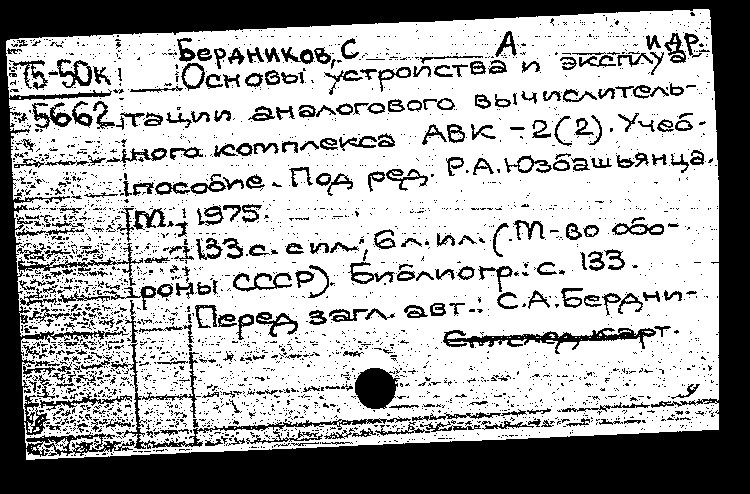 Бердников, С А. и др.
75-50к Основы устройства и эксплуа-
5662 тации аналогового вычислитель-
ного комплекса АВК-2(2). Учеб.
пособие. Под ред. Р.А.Юзбашьянца.
М., 1975.
133 с. с ил., 6 л. ил. (М-во обо-
роны СССР). Библиогр.: с. 133.
Перед загл. авт.: С.А.Бердни-